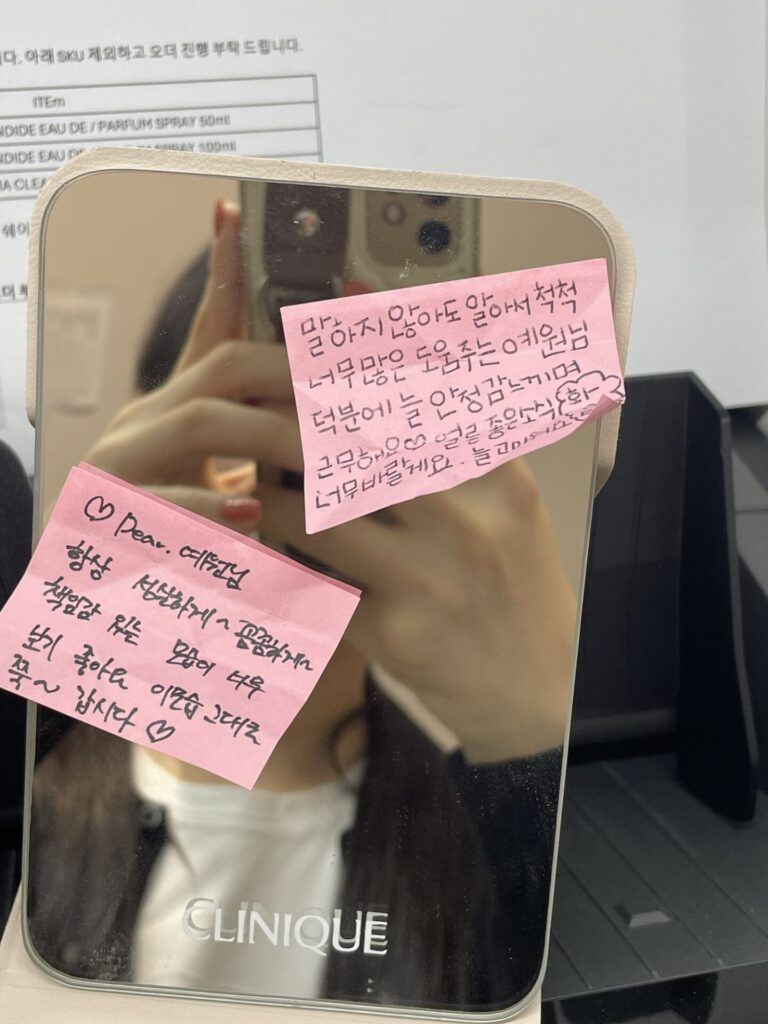 다. 아래 SKU 제외하고 오더 진행 부탁 드립니다.
ITEm
NDIDE EAU DE / PARFUM SPRAY 50ml
NDIDE EAU DE SPRAY 100ml
IA CLEA
쉐이
더 부
말하지 않아도 알아서 척척
너무 많은 도움주는 예원님
덕분에 늘 안정감느끼며
근무해요♡ 얼른 좋은소식
너무바랄게요. 늘
♡ Dear. 예원님
항상 성실하게~ 꼼꼼하게~
책임감 있는 모습이 너무
보기 좋아요 이모습 그대로
쭉~ 갑시다 ♡
CLINIQUE